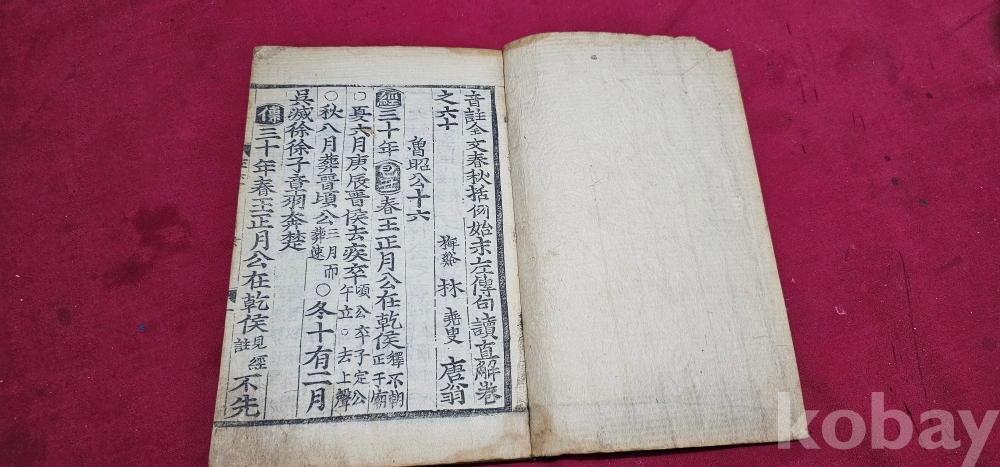 音註全文春秋括例始末左傳句讀直解卷
之六十 梅谿 林 堯叟 唐翁
魯昭公十六
經三十年春王正月公在乾侯釋不朝正于廟
○夏六月庚辰晉侯去疾卒頃公卒子定公午立○去上聲
○秋八月葬晉頃公三月而葬速○冬十有二月
吳滅徐徐子章羽奔楚
傳三十年春王正月公在乾侯見經註不先
kobay